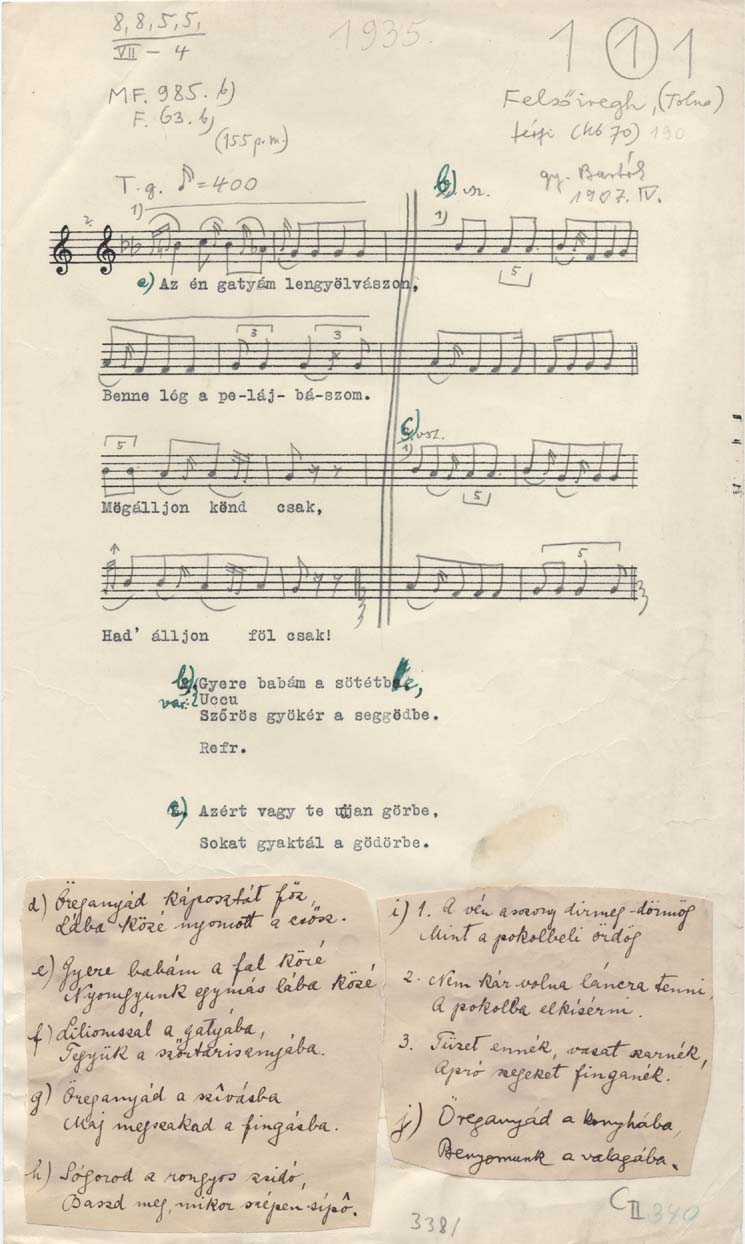 8, 8, 5, 5,
VII – 4
1935.
1 1 1
MF. 985. b)
F. 63. b)
(155 p.m.)
Felsőiregh, (Tolna)
férfi (kb 70) 190
gy. Bartók
1907. IV.
T. g. ♪=400
b) vsz.
1)
2.
1)
5
a) Az én gatyám lengyölvászon,
3
3
Benne lóg a pe-láj- bá-szom.
5
c) vsz.
1)
5
Mögálljon könd csak,
5
Had' álljon föl csak!
b) Gyere babám a sötétbe,
var: 2 Uccu
Szőrös gyökér a seggödbe.
Refr.
c) Azért vagy te ujjan görbe,
Sokat gyaktál a gödörbe.
d) Öreganyád káposztát főz,
Lába közé nyomott a csősz.
e) Gyere babám a fal köré
Nyomgyunk egymás lába közé
f) Liliomszál a gatyába,
Tegyük a szőrtarisanyába.
g) Öreganyád a szívásba
Maj megszakad a fingásba.
h) Sógorod a rongyos zsidó,
Baszd meg, mikor szépen sípô.
i) 1. A vén asszony dirmeg-dörmög
Mint a pokolbeli ördög
2. Nem kár volna láncra tenni,
A pokolba elkisérni.
3. Tüzet ennék, vasat szarnék,
Apró szegeket finganék.
j) Öreganyád a konyhába,
Benyomunk a valagába.
C II 340
3381